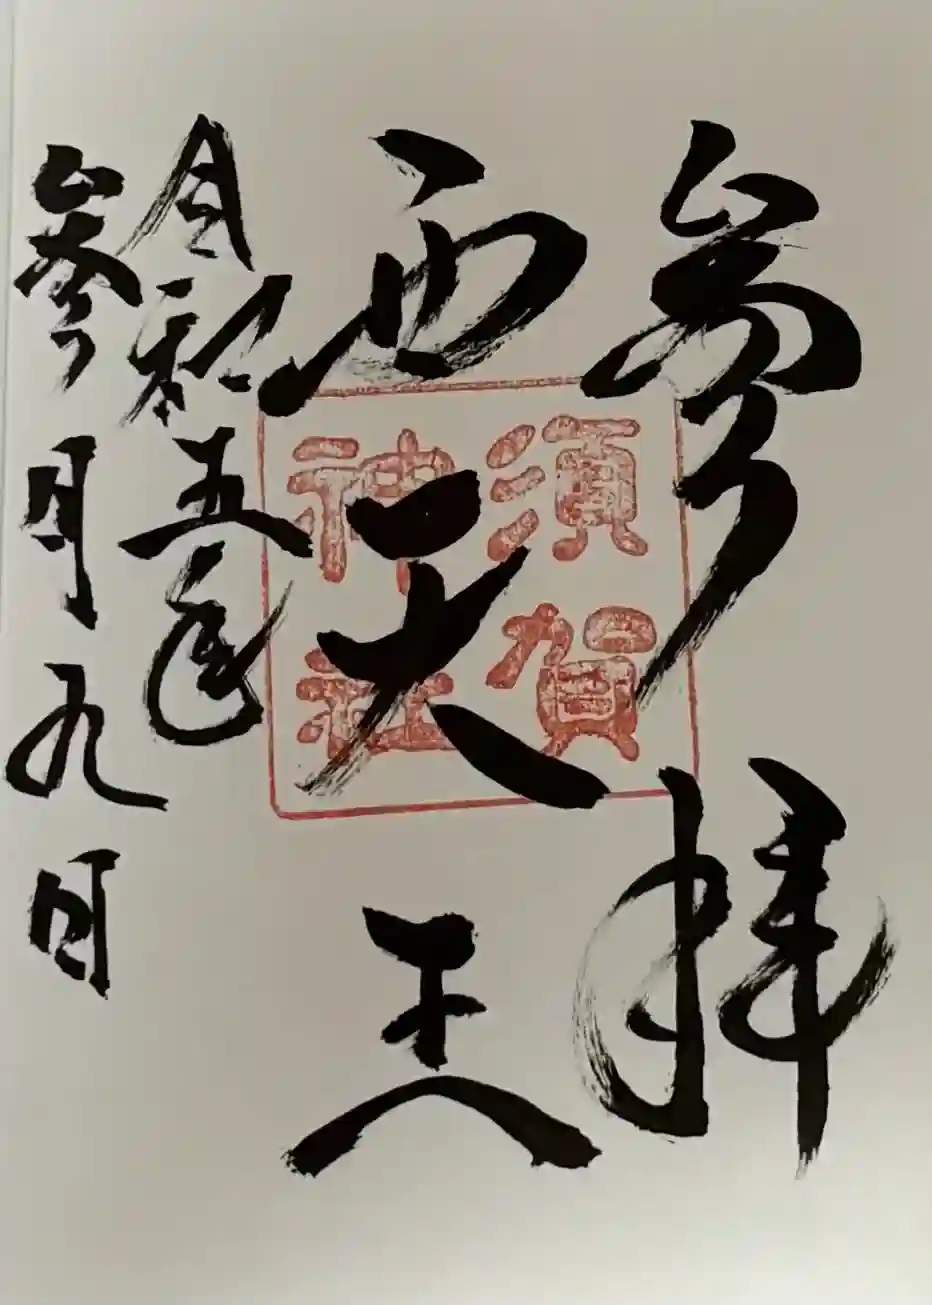 參拜
西天王
須賀
神社
令和五年
參月九日